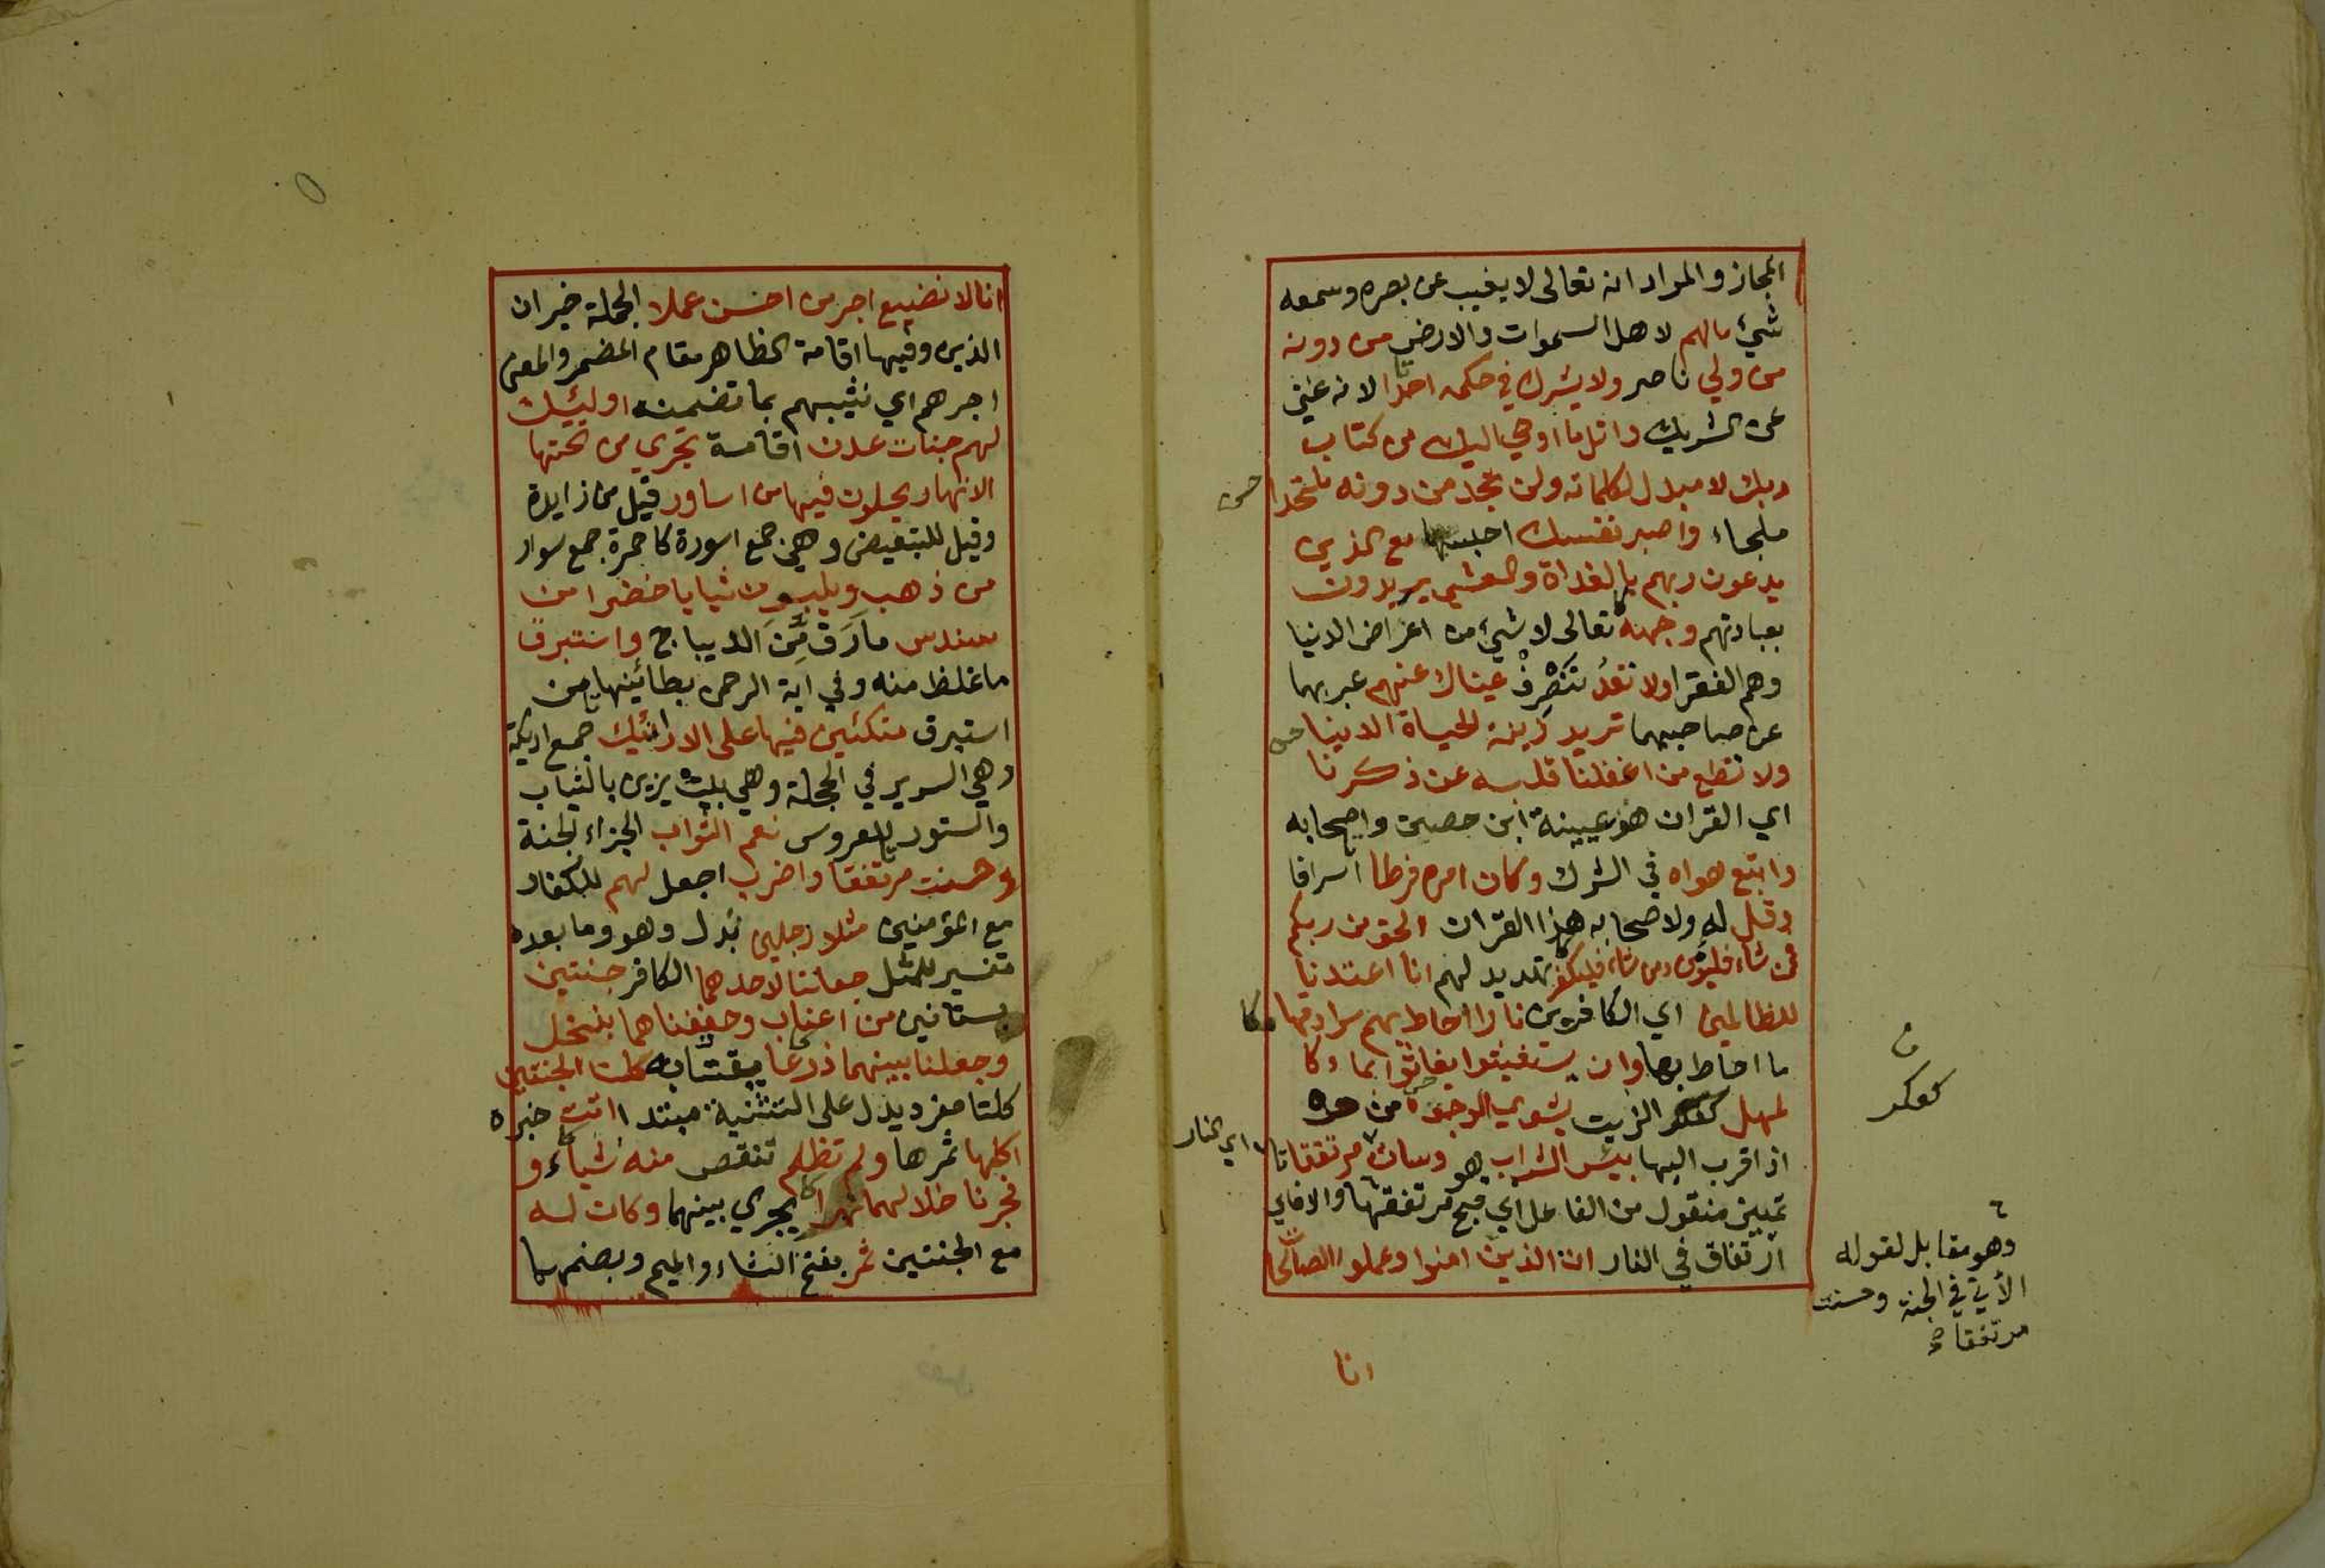 المجاز والمراد انه تعالى لا يغيب عن بصره وسمعه
شئ مالهم لاهل السموات والارض من دونه
من ولي ناصر ولا يشرك في حكمه احدا لانه غني
عن الشريك واتل ما اوحي اليك من كتاب
ربك لا مبدل لكلماته ولن تجد من دونه ملتحدا
ملجاء واصبر نفسك احبسها مع الذين
يدعون ربهم بالغداة والعشي يريدون
بعبادتهم وجهه تعالى لا شئ من اعراض الدنيا
وهم الفقرا ولا تعد تنصرف عيناك عنهم عبر بهما
عن صاحبهما تريد زينة الحياة الدينا
ولا تطع من اغفلنا قلبه عن ذكرنا
اي القران هو عيينة ابن حصين واصحابه
واتبع هواه في الشرك وكان امره فرطا اسرافا
وقل له ولاصحابه هذا القران الحق من ربكم
فمن شاء فليؤمن ومن شاء فليكفر تهديد لهم انا اعتدنا
للظالمين اي الكافرين نارا احاط بهم سرادقها
ما احاط بها وان يستغيثوا يغاثوا بماء كا
لمهل كعكر الزيت يشوي الوجوه من حره
اذا قرب اليها بئس الشراب هو وسات مرتفقا
اي النار
تمييز منقول من الفاعل اي قبح مرتفقها والا فاي
ارتفاق في النار ان الذين امنوا وعملوا الصالحات
انا
كعكر
وهو مقابل لقوله
الأتي في الجنة وحسنت
مرتفقا
انا لا نضيع اجر من احسن عملا الجملة خبر ان
الذين وفيها اقامة الظاهر مقام المضمر والمعنى
اجرهم اي نثيبهم بما تضمنه اوليئك
لهم جنات عدن اقامة تجري من تحتها
الانهار يحلون فيها من اساور قيل من زايدة
وقيل للتبعيض وهي جمع اسورة كاحمرة جمع سوار
من ذهب ويلبسون ثيابا خضرا من
سندس مارَقَّ مِّنَ الديباج واستبرق
ما غلظ منه وفي اية الرحمن بطائينها من
استبرق متكئين فيها على الارائيك جمع اريكة
وهي السرير في الحجلة وهي بيت يزين بالثياب
والستور للعروس نعم الثواب الجزاء الجنة
وحسنت مرتفقا واضرب اجعل لهم للكفار
مع المؤمنين مثلا رجلين بدل وهو وما بعده
تفسير للمثل جعلنا لاحدهما الكافر جنتين
بستانين من اعناب وحففناهما بنخل
وجعلنا بينهما زرعا يقتتا به كلتا الجنتين
كلتا مفرد يدل على التثنية مبتدا اتت خبره
اكلها ثمرها ولم تظلم تنقص منه شياء و
فجرنا خلالهما نهرا يجري بينهما وكان له
مع الجنتين ثمر بفتح الثاء والميم وبضمهما